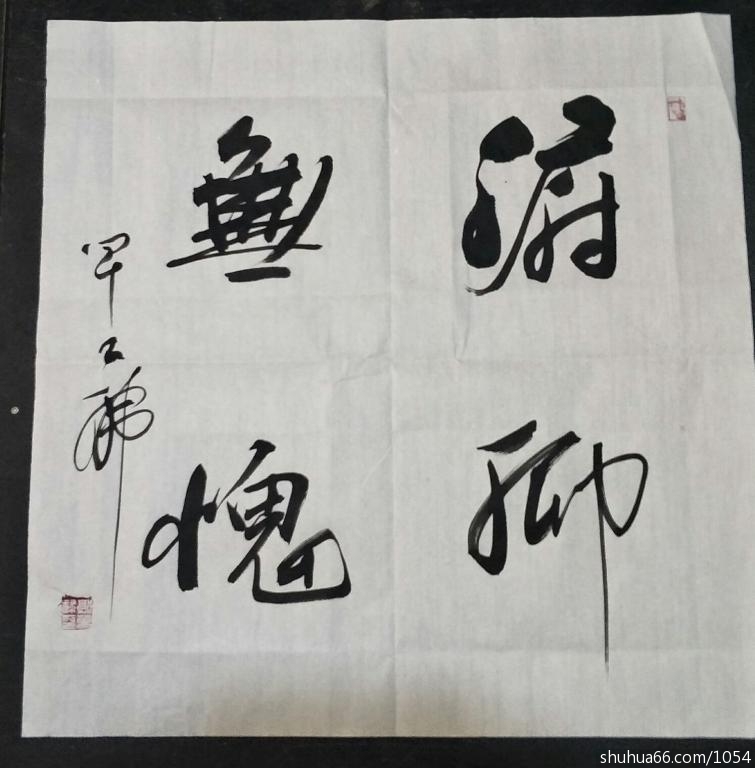 俯仰
無愧
shuhua66.com/1054